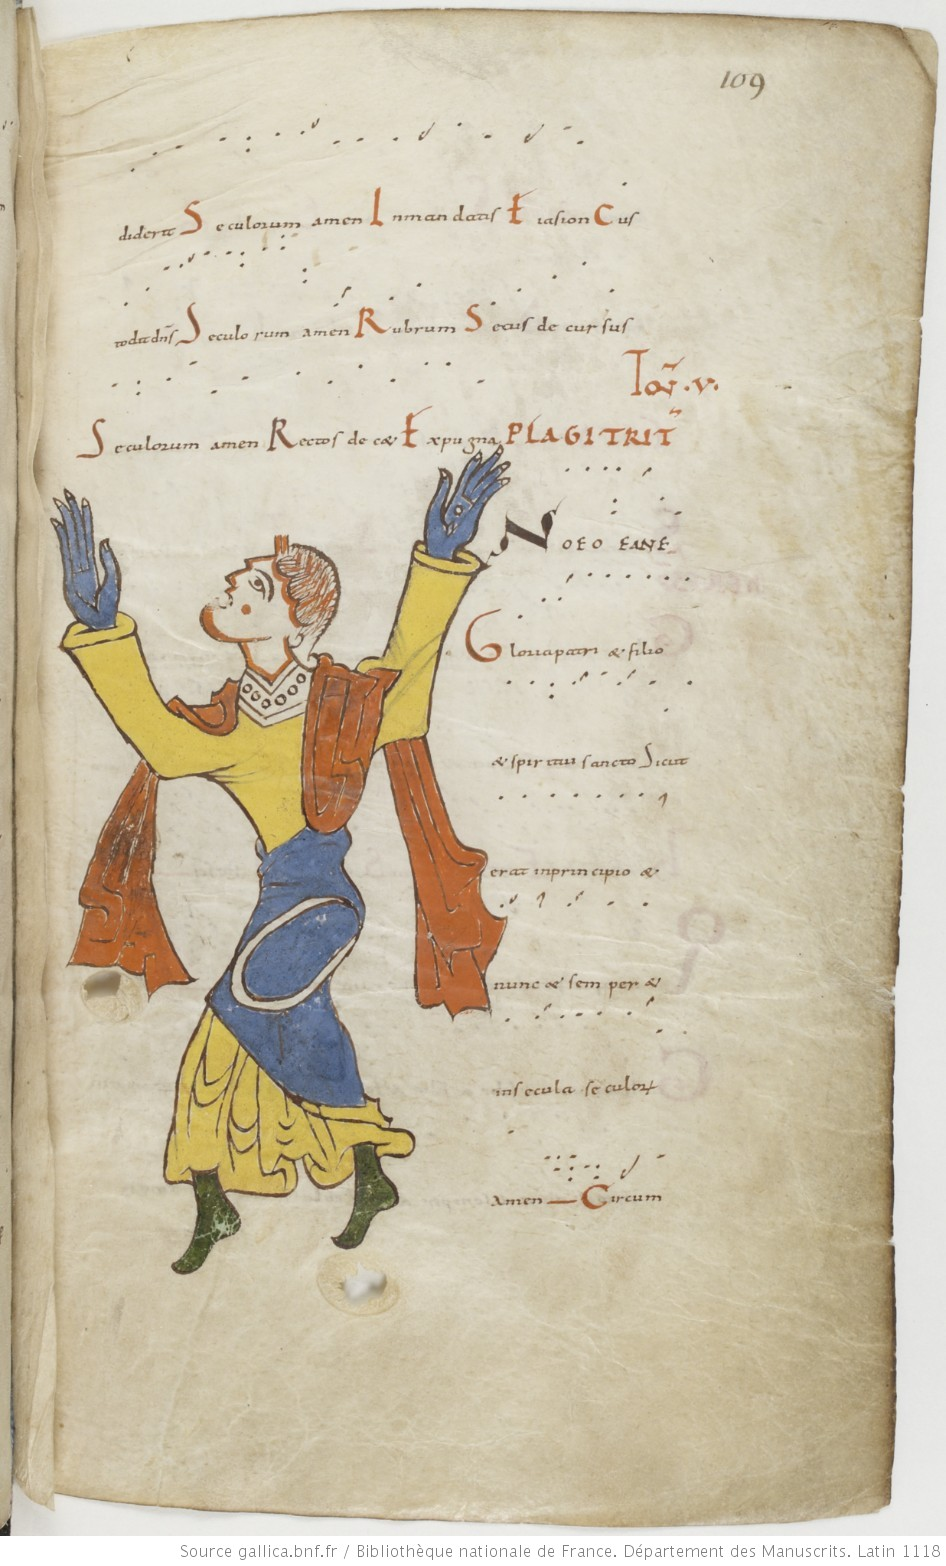 109
diderit Seculorum amen Inmandatis Euasion Cus
todit dn̄s Seculorum amen Rubrum Secus decursus
Toñ .v.
Seculorum amen Rectos decæ Expugna PLAGI TRIT̄
NOEO EANE
Gloriapatri & filio
& spiritui sancto Sicut
erat inprincipio &
nunc & semper &
insecula seculoꝝ
amen — Circum
Source gallica.bnf.fr / Bibliothèque nationale de France. Département des Manuscrits. Latin 1118